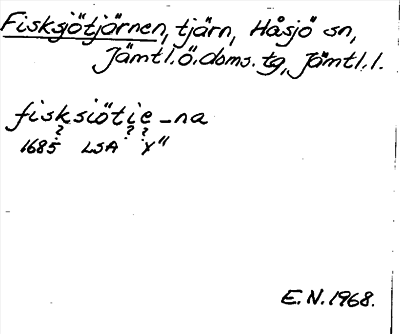 Fisksjötjärnen, tjärn, Håsjö sn,
Jämtl.ö.doms.tg, Jämtl.l.
fisksiötie_na
? ? ?
1685 LSA Y"
E.N.1968.